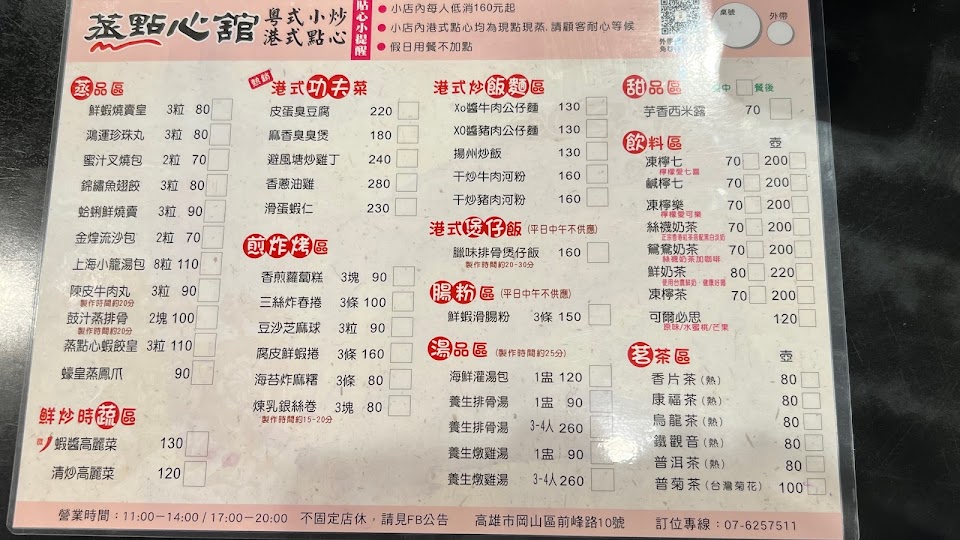 蒸點心舘
粵式小炒
港式點心
貼心小提醒
小店內每人低消160元起
小店內港式點心均為現點現蒸,請顧客耐心等候
假日用餐不加點
桌號
外帶
蒸品區
鮮蝦燒賣皇 3粒 80
鴻運珍珠丸 3粒 80
蜜汁叉燒包 2粒 70
錦繡魚翅餃 3粒 80
蛤蜊鮮燒賣 3粒 90
金煌流沙包 2粒 70
上海小籠湯包 8粒 110
陳皮牛肉丸 3粒 90
製作時間約20分
豉汁蒸排骨 2塊 100
製作時間約20分
蒸點心蝦餃皇 3粒 110
蠔皇蒸鳳爪 90
鮮炒時蔬區
微 蝦醬高麗菜 130
清炒高麗菜 120
熱銷
港式功夫菜
皮蛋臭豆腐 220
麻香臭臭煲 180
避風塘炒雞丁 240
香蔥油雞 280
滑蛋蝦仁 230
煎炸烤區
香煎蘿蔔糕 3塊 90
三絲炸春捲 3條 100
豆沙芝麻球 3粒 90
腐皮鮮蝦捲 3條 160
海苔炸麻糬 3條 80
煉乳銀絲卷 3塊 80
製作時間約15-20分
港式炒飯麵區
XO醬牛肉公仔麵 130
XO醬豬肉公仔麵 130
揚州炒飯 130
干炒牛肉河粉 160
干炒豬肉河粉 160
港式煲仔飯 (平日中午不供應)
臘味排骨煲仔飯 160
製作時間約20-30分
腸粉區 (平日中午不供應)
鮮蝦滑腸粉 3條 150
湯品區 (製作時間約25分)
海鮮灌湯包 1盅 120
養生排骨湯 1盅 90
養生排骨湯 3-4人 260
養生燉雞湯 1盅 90
養生燉雞湯 3-4人 260
甜品區 中 餐後
芋香西米露 70
飲料區 壺
凍檸七 70 200
檸檬愛七喜
鹹檸七 70 200
凍檸樂 70 200
檸檬愛可樂
絲襪奶茶 70 200
正宗香港紅茶搭配黑白淡奶
鴛鴦奶茶 70 200
絲襪奶茶加咖啡
鮮奶茶 80 220
使用台農鮮奶,健康好喝
凍檸茶 70 200
可爾必思 120
原味/水蜜桃/芒果
茗茶區 壺
香片茶(熱) 80
康福茶(熱) 80
烏龍茶(熱) 80
鐵觀音(熱) 80
普洱茶(熱) 80
普菊茶(台灣菊花) 100
營業時間:11:00-14:00 / 17:00-20:00 不固定店休,請見FB公告 高雄市岡山區前峰路10號 訂位專線:07-6257511